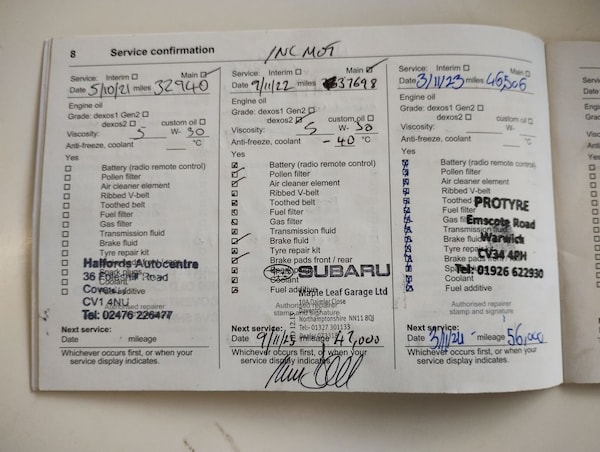 8 Service confirmation
INC MOT
Service: Interim Main
Date 5/10/21 miles 32940
Engine oil
Grade: dexos1 Gen2
dexos2 custom oil
Viscosity: 5 W- 30
Anti-freeze, coolant °C
Yes
Battery (radio remote control)
Pollen filter
Air cleaner element
Ribbed V-belt
Toothed belt
Fuel filter
Gas filter
Transmission fluid
Brake fluid
Tyre repair kit
Halfords Autocentre
36 Road
CV1 4NU
Tel: 02476 226477
Next service:
Date mileage
Whichever occurs first, or when your
service display indicates.
Service: Interim Main
Date 9/11/22 miles 37698
Engine oil
Grade: dexos1 Gen2
dexos2 custom oil
Viscosity: 5 W- 30
Anti-freeze, coolant -40 °C
Yes
Battery (radio remote control)
Pollen filter
Air cleaner element
Ribbed V-belt
Toothed belt
Fuel filter
Gas filter
Transmission fluid
Brake fluid
Tyre repair kit
Brake pads front / rear
SUBARU
Fuel additive
Maple Leaf Garage Ltd
Authorised repairer
stamp and signature
10A Daimler Close
Northamptonshire NN11 8QJ
Tel:- 01327 301133
Next service:
Date 9/11/23 mileage 47,000
Whichever occurs first, or when your
service display indicates.
Service: Interim Main
Date 3/11/23 miles 46,506
Engine oil
Grade: dexos1 Gen2
dexos2 custom oil
Viscosity: W-
Anti-freeze, coolant °C
Yes
Battery (radio remote control)
Pollen filter
Air cleaner element
Ribbed V-belt
Toothed belt
Fuel filter
Gas filter
Transmission fluid
Brake fluid
Tyre repair kit
PROTYRE
Emscote Road
Warwick
CV34 4RH
Tel: 01926 622930
Coolant
Fuel additive
Authorised repairer
stamp and signature
Next service:
Date 3/11/24 mileage 56,000
Whichever occurs first, or when your
service display indicates.